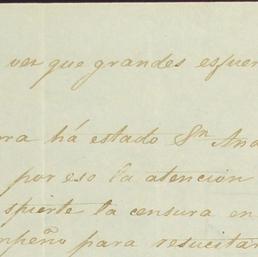 ver que grandes esfuer
rra há estado Sn And
por eso la atencion
spierte la censura en
mpeño para resucitar